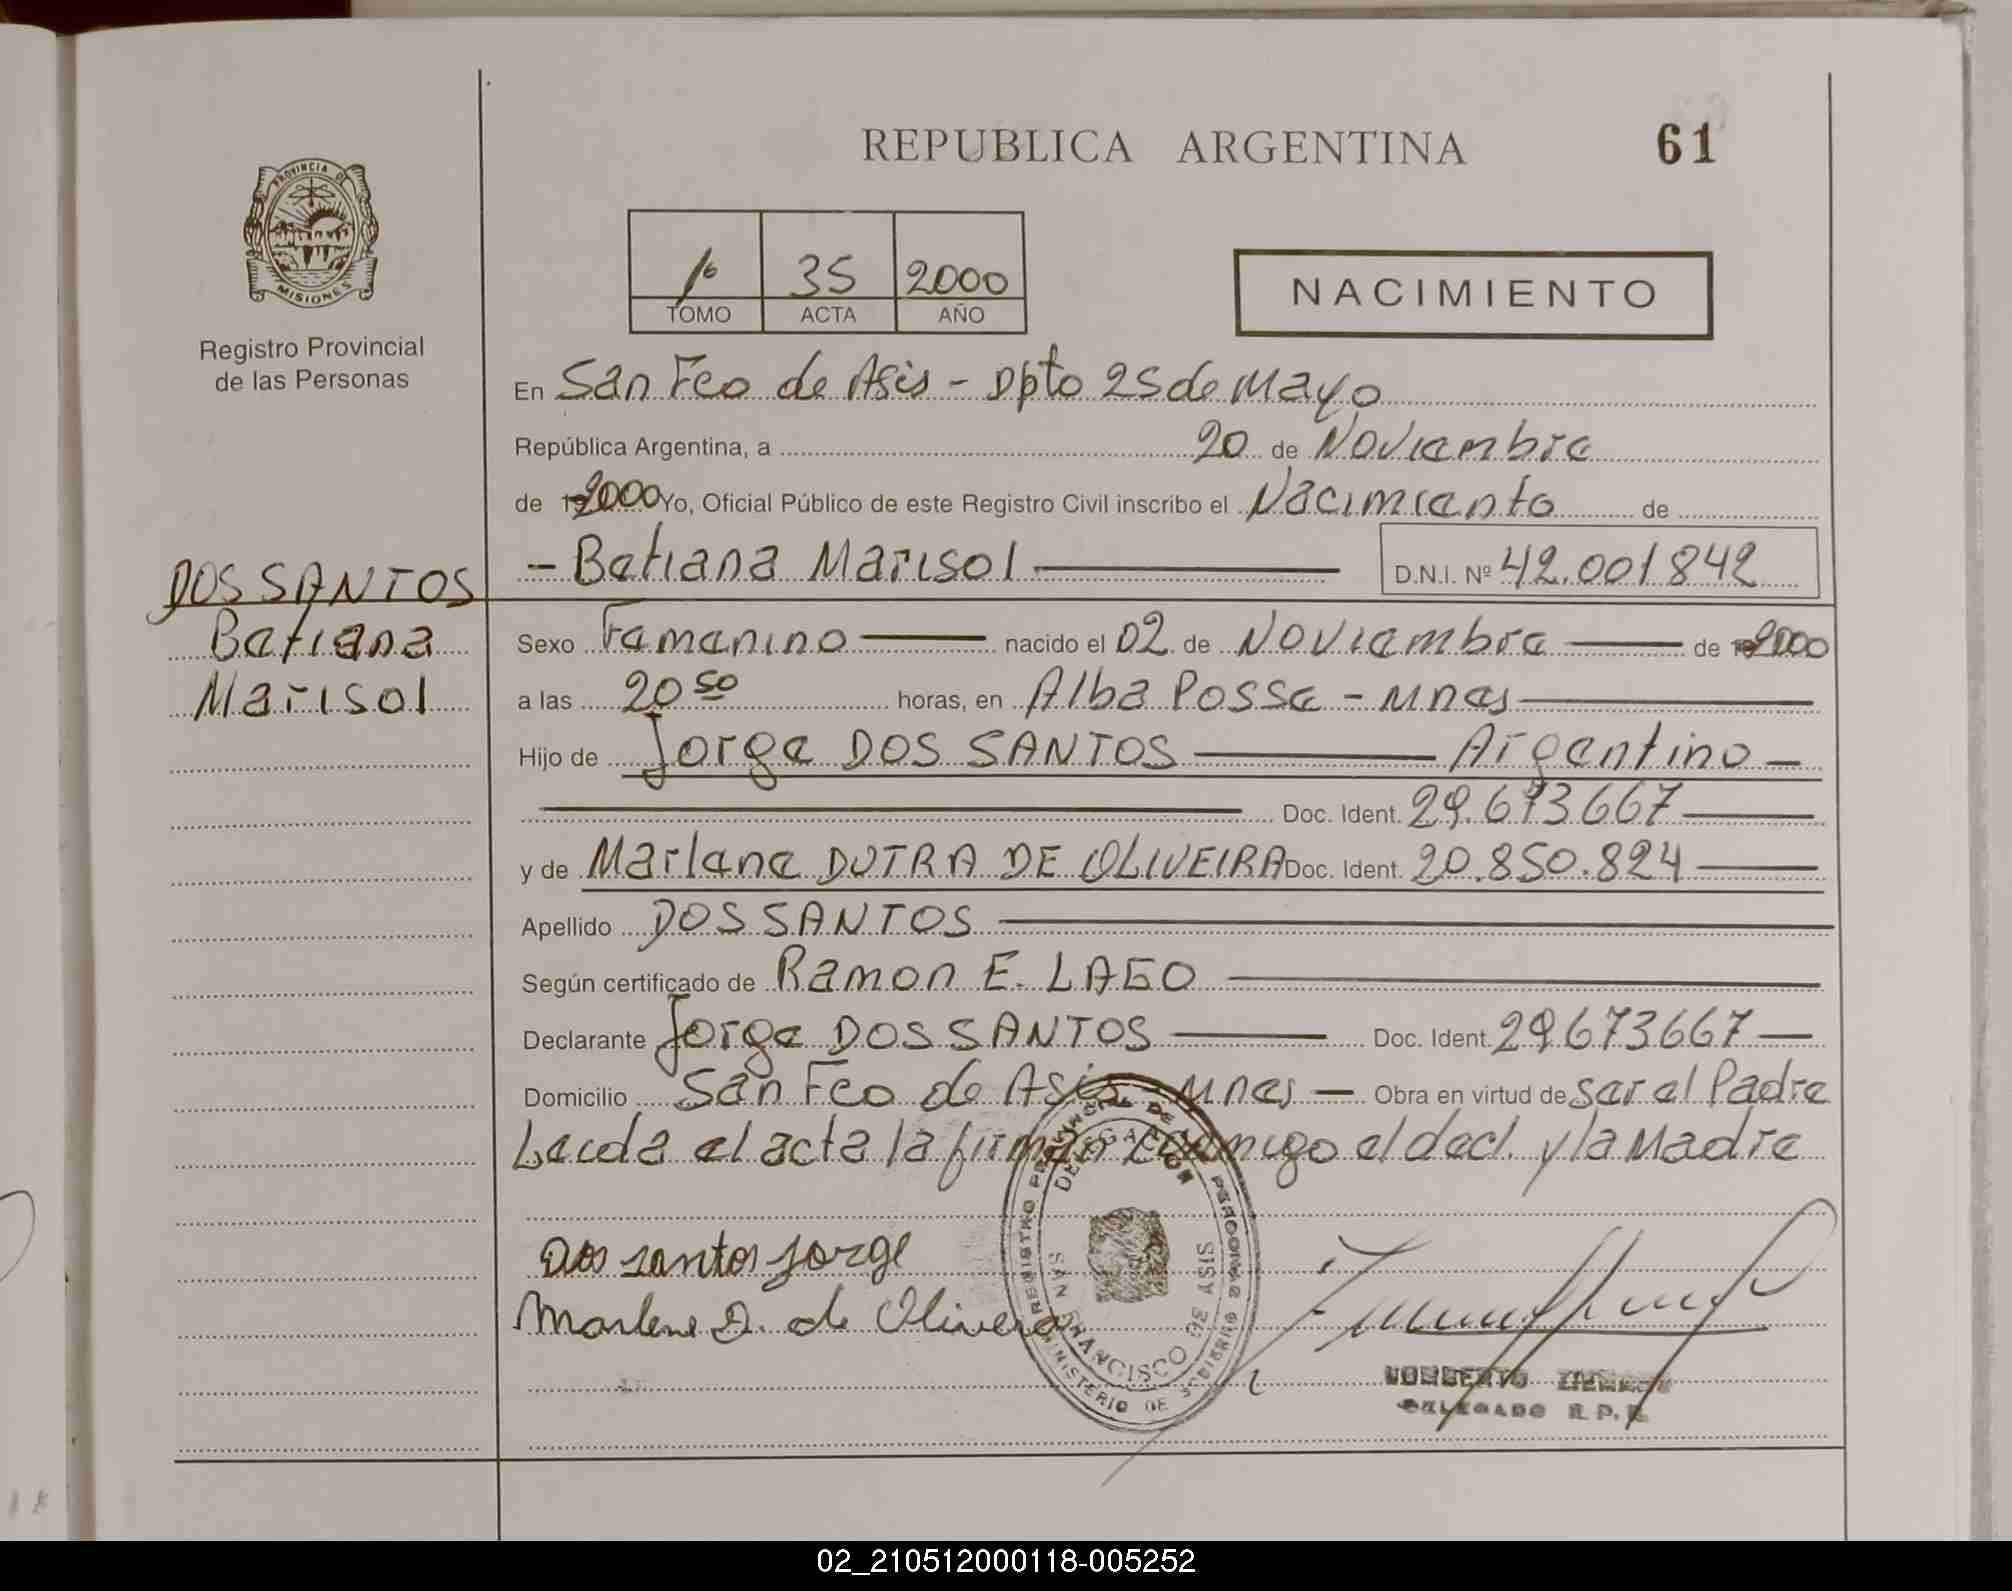 REPUBLICA ARGENTINA
61
PROVINCIA DE
MISIONES
Registro Provincial
de las Personas
1º 35 2000
TOMO ACTA AÑO
NACIMIENTO
En San Fco de Asis - Dpto 25 de Mayo
República Argentina, a 20 de Noviembre
de 192000 Yo, Oficial Público de este Registro Civil inscribo el Nacimiento de
- Betiana Marisol D.N.I. Nº 42.001842
DOS SANTOS
Betiana
Marisol
Sexo Femenino nacido el 02 de Noviembre de 2000
a las 20 50 horas, en Alba Posse - Mnes
Hijo de Jorge DOS SANTOS Argentino
Doc. Ident. 29.673.667
y de Marlene DUTRA DE OLIVEIRA Doc. Ident. 20.850.824
Apellido DOS SANTOS
Según certificado de Ramon E. LAGO
Declarante Jorge DOS SANTOS Doc. Ident. 29.673667
Domicilio San Fco de Asis - Mnes Obra en virtud de ser el Padre
Leida el acta la firman conmigo el decl. y la Madre
Dos santos Jorge
Marlene D. de Olivera
REGISTRO PROVINCIAL DE PERSONAS
DELEGACION
SAN FRANCISCO DE ASIS
MINISTERIO DE GOBIERNO
NORBERTO
DELEGADO R.P.P.
02_210512000118-005252